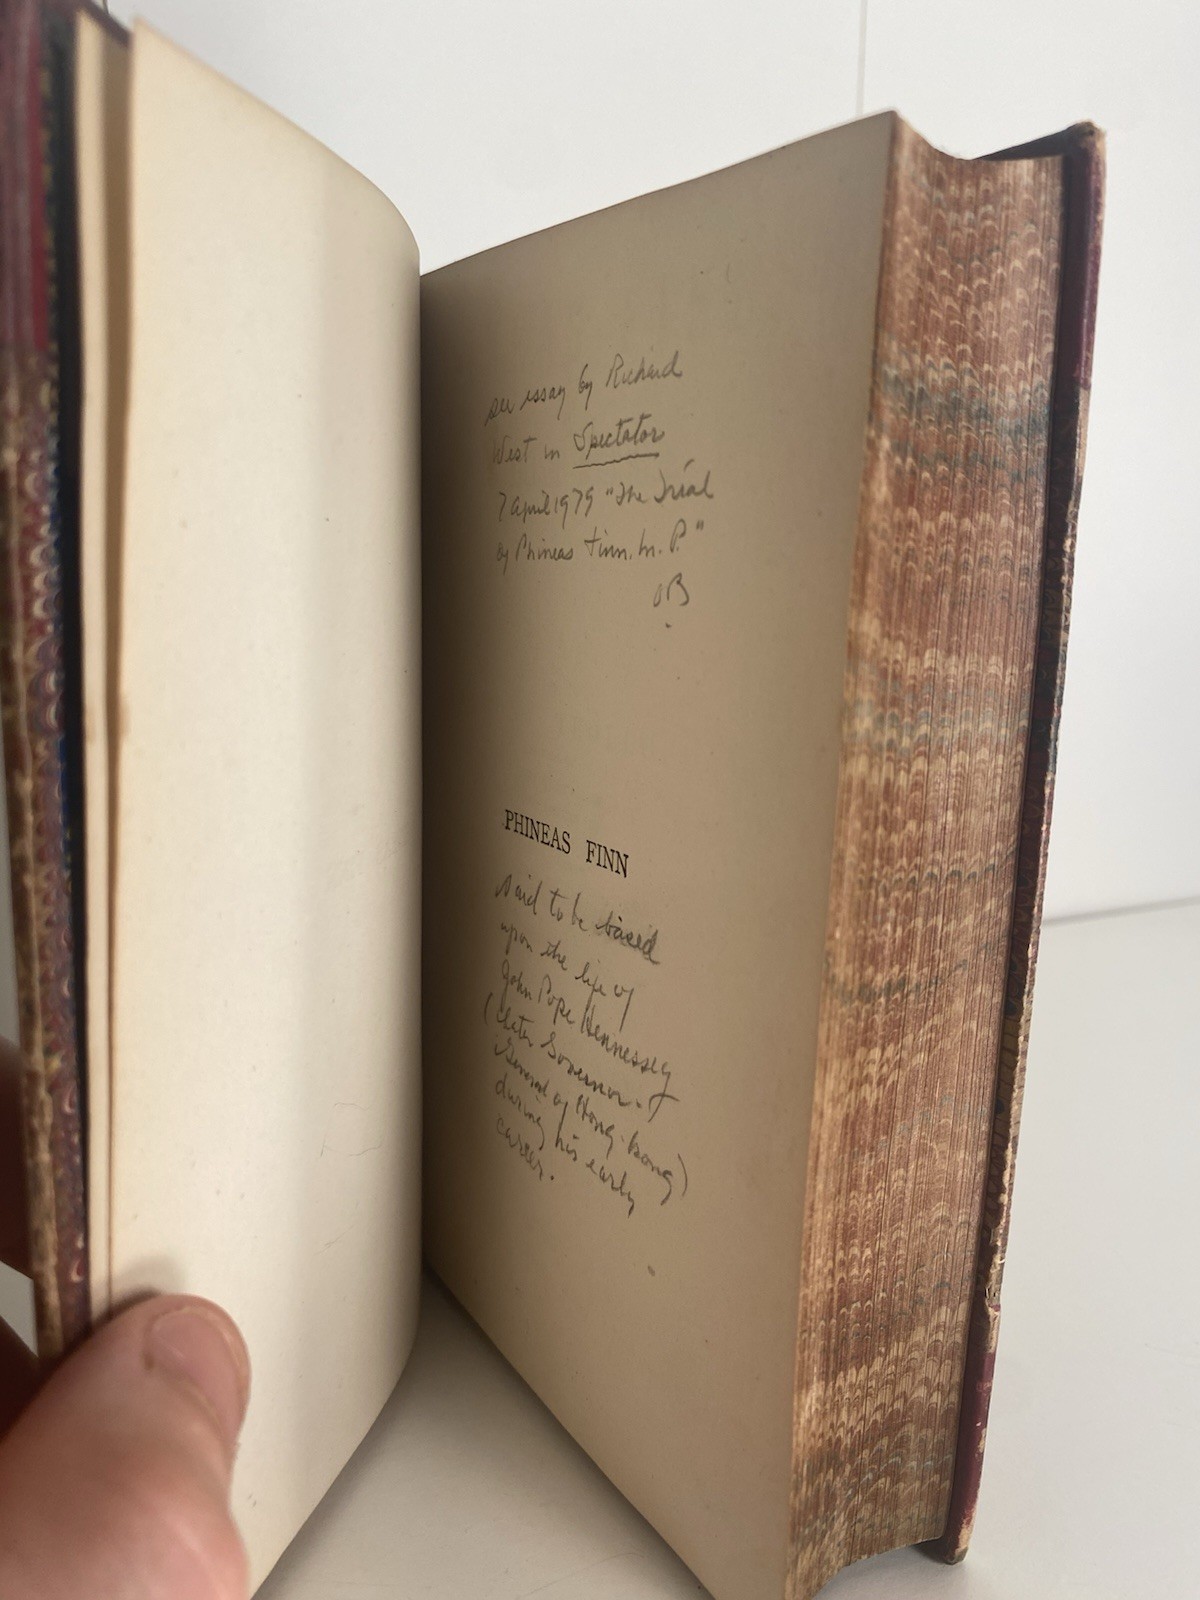 see essay by Richard
West in Spectator
7 April 1979 "The Trial
of Phineas Finn. M. P."
OB
PHINEAS FINN
Said to be based
upon the life of
John Pope Hennessey
(later Governor-
General of Hong-kong)
during his early
career.